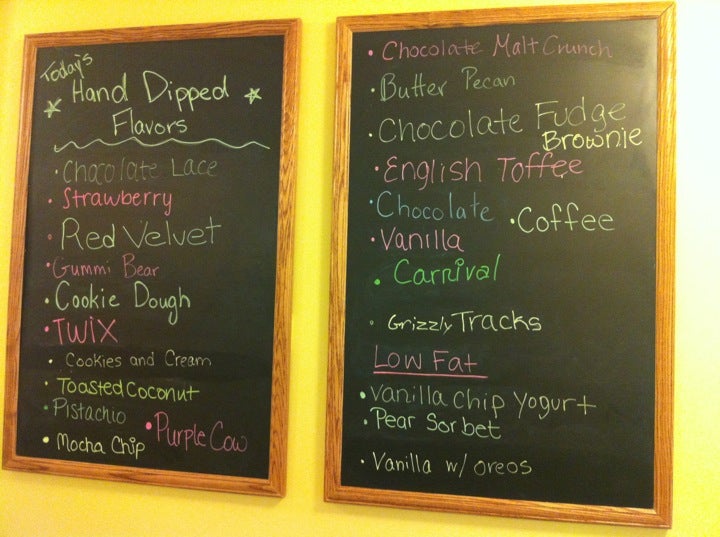 Today's
Hand Dipped
Flavors
Chocolate Lace
Strawberry
Red Velvet
Gummi Bear
Cookie Dough
TWIX
Cookies and Cream
Toasted Coconut
Pistachio
Purple Cow
Mocha Chip
Chocolate Malt Crunch
Butter Pecan
Chocolate Fudge
Brownie
English Toffee
Chocolate
Coffee
Vanilla
Carnival
Grizzly Tracks
Low Fat
Vanilla Chip Yogurt
Pear Sorbet
Vanilla w/ oreos